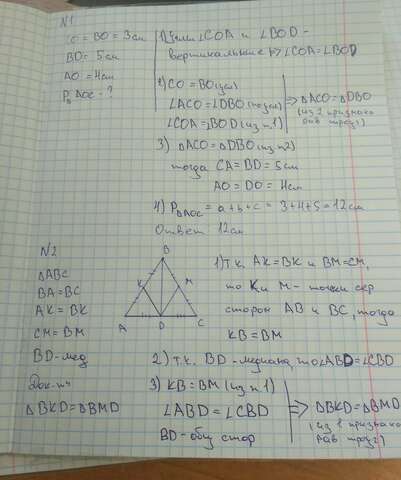 N1
CO = BO = 3 см
BD = 5 см
AO = 4 см
P△AOC - ?
1) ∠COA и ∠BOD -
вертикальные => ∠COA = ∠BOD
2) CO = BO (усл)
∠ACO = ∠DBO (по усл)
∠COA = ∠BOD (из п.1)
=> △ACO = △DBO
(из 2 признака
рав треуг)
3) △ACO = △DBO (из п2)
тогда CA = BD = 5 см
AO = DO = 4 см
4) P△AOC = a + b + c = 3+4+5 = 12 см
Ответ 12 см
N2
△ABC
BA = BC
AK = BK
CM = BM
BD - мед
Док-ть
△BKD = △BMD
B
K
M
A
D
C
1) Т.к. AK = BK и BM = CM,
то K и M - точки сер
сторон AB и BC, тогда
KB = BM
2) т.к. BD - медиана, то ∠ABD = ∠CBD
3) KB = BM (из п 1)
∠ABD = ∠CBD
BD - общ стор
=> △BKD = △BMD
(из 1 признака
рав треуг)